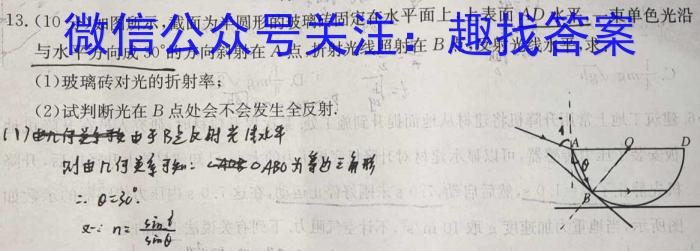 13.(10 如图所示,截面为半圆形的玻璃砖固定在水平面上,上表面AD水平,一束单色光沿
与水平方向成30°的方向斜射在A点,折射光线照射在B点,反射光线水平,求:
微信公众号关注:趣找答案
(1)玻璃砖对光的折射率;
(2)试判断光在B点处会不会发生全反射.
(1) 由于B点反射光线水平
则由几何关系可知: △ABO为等边三角形
∴ θ=30°
又∵ n= sin i / sin θ
A O D
θ
B